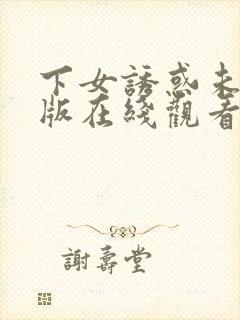 下女誘惑未
版在綫觀看
謝壽堂